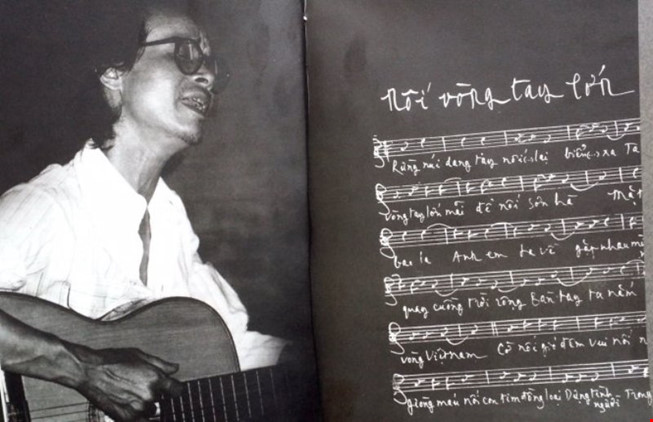 nối vòng tay lớn
Rừng núi dang tay nối lại biển xa Ta
vòng tay lớn mãi để nối sơn hà
bao la Anh em ta về gặp nhau
quay cuồng trời rộng Bàn tay ta nắm
vòng Việt nam Cờ nối gió đêm vui nối
giòng máu nối con tim đồng loại Dựng tình người Trong